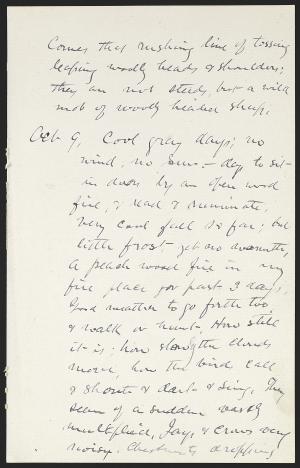 Comes that rushing line of tossing
leaping woolly heads & shoulders;
they are not steeds, but a wild
mob of woolly headed sheep.
Oct. 9, Cool gray days; no
wind, no sun - day to sit
in doors by an open wood
fire, & read & ruminate,
Very cool fall so far; but
little frost yet
A peach wood fire in my
fire place for past 3 days.
Good weather to go forth too
& walk or hunt. How still
it is; how slow the clouds
move, how the birds call
& shout & dart & sing. They
seem of a sudden vastly
multiplied. Jays & crows very
noisy. Chestnuts dropping